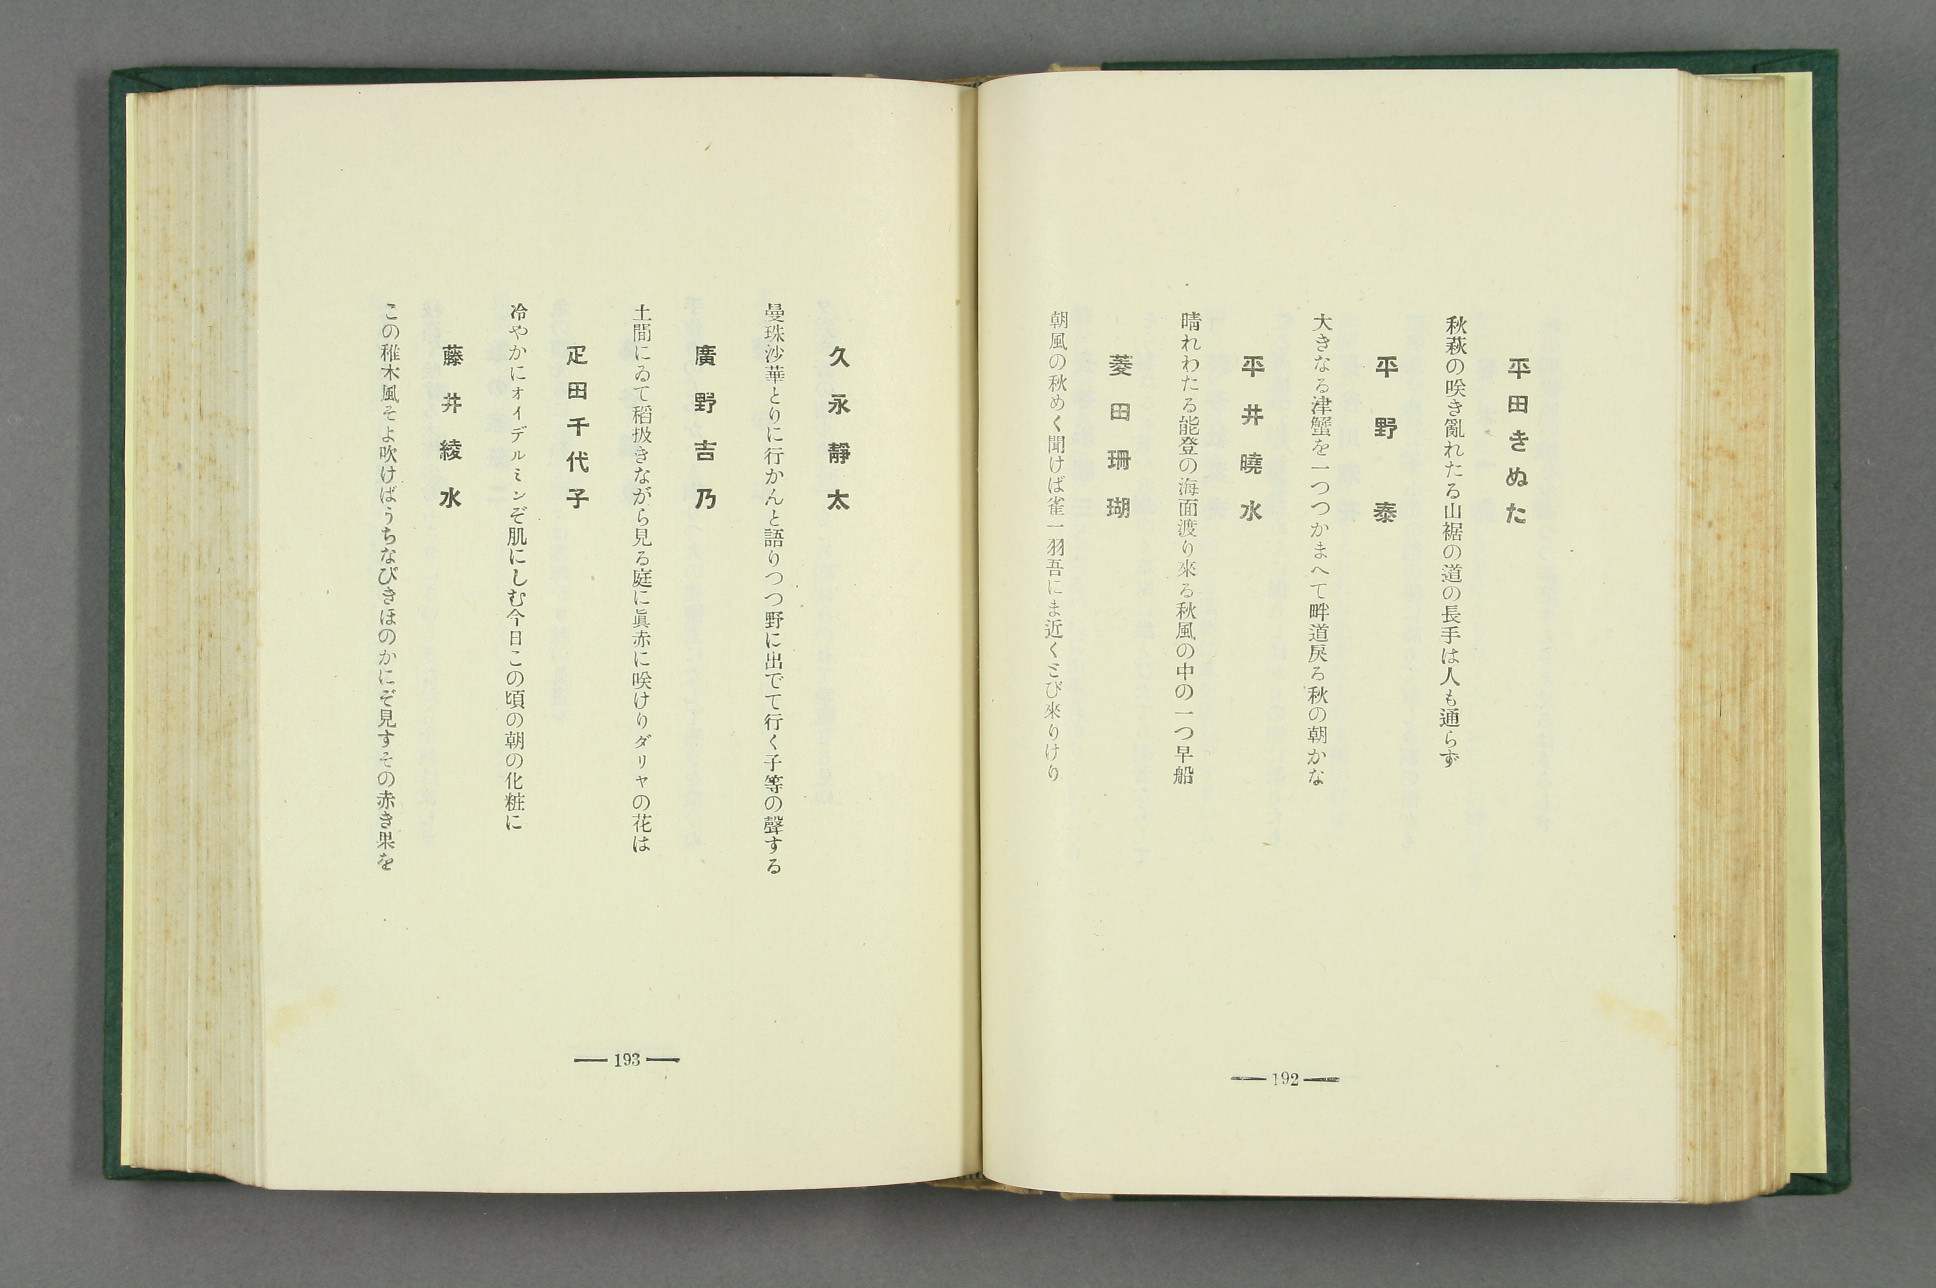 平田きぬた
秋萩の咲き亂れたる山裾の道の長手は人も通らず
平野泰
大きなる津蟹を一つつかまへて畔道戻る秋の朝かな
平井曉水
晴れわたる能登の海面渡り來る秋風の中の一つ早船
菱田珊瑚
朝風の秋めく聞けば雀一羽吾にま近くとび來りけり
― 192 ―
久永靜太
曼珠沙華とりに行かんと語りつつ野に出でて行く子等の聲する
廣野吉乃
土間にゐて稻扱きながら見る庭に眞赤に咲けりダリヤの花は
疋田千代子
冷やかにオイデルミンぞ肌にしむ今日この頃の朝の化粧に
藤井綾水
この稚木風そよ吹けばうちなびきほのかにぞ見すその赤き果を
― 193 ―